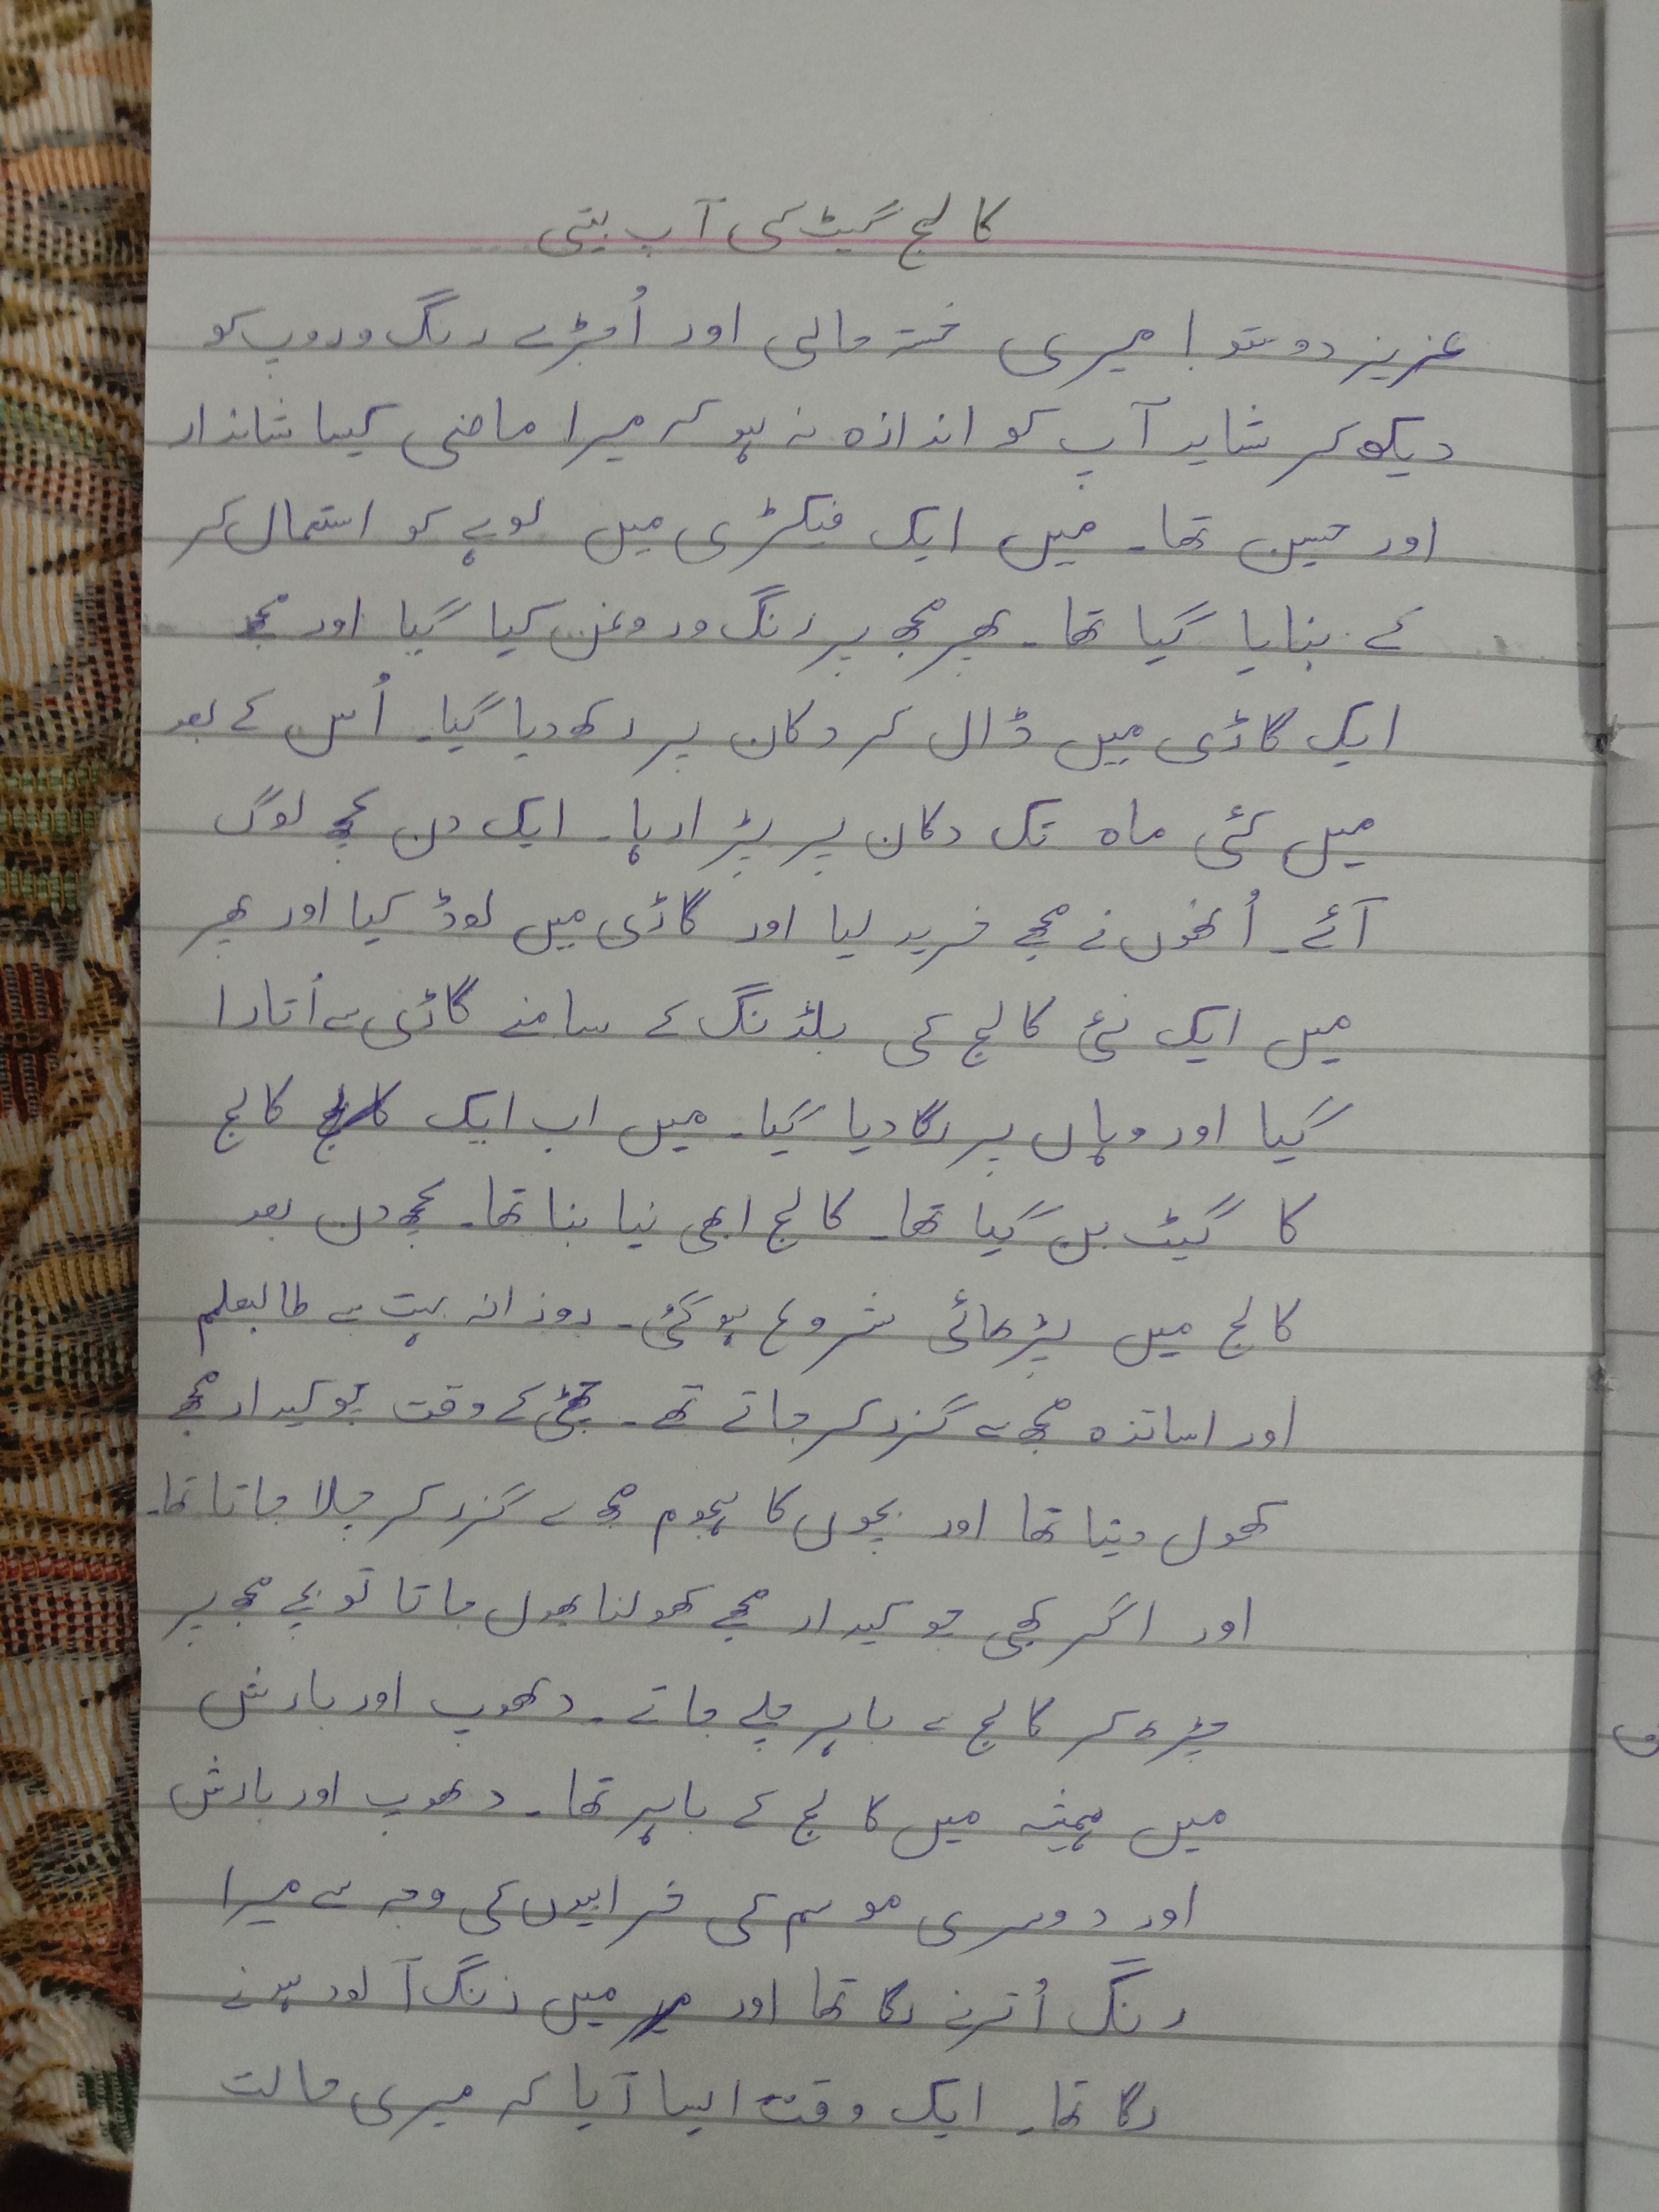 کالج گیٹ کی آپ بیتی
عزیز دوستو! میری خستہ حالی اور اُجڑے رنگ و روپ کو
دیکھ کر شاید آپ کو اندازہ نہ ہو کہ میرا ماضی کیسا شاندار
اور حسین تھا۔ میں ایک فیکڑی میں لوہے کو استعمال کر
کے بنایا گیا تھا۔ پھر مجھ پر رنگ و روغن کیا گیا اور مجھے
ایک گاڑی میں ڈال کر دکان پر رکھ دیا گیا۔ اُس کے بعد
میں کئی ماہ تک دکان پر پڑا رہا۔ ایک دن کچھ لوگ
آئے۔ اُنھوں نے مجھے خرید لیا اور گاڑی میں لوڈ کیا اور پھر
میں ایک نئی کالج کی بلڈنگ کے سامنے گاڑی سے اُتارا
گیا اور وہاں پر لگا دیا گیا۔ میں اب ایک کالج
کا گیٹ بن گیا تھا۔ کالج ابھی نیا بنا تھا۔ کچھ دن بعد
کالج میں پڑھائی شروع ہو گئی۔ روزانہ بہت سے طالبعلم
اور اساتذہ مجھ سے گزر کر جاتے تھے۔ چھٹی کے وقت چوکیدار مجھے
کھول دیتا تھا اور بچوں کا ہجوم مجھ سے گزر کر چلا جاتا تھا۔
اور اگر کبھی چوکیدار مجھے کھولنا بھول جاتا تو بچے مجھ پر
چڑھ کر کالج سے باہر چلے جاتے۔ دھوپ اور بارش
میں ہمیشہ میں کالج کے باہر تھا۔ دھوپ اور بارش
اور دوسری موسم کی خرابیوں کی وجہ سے میرا
رنگ اُترنے لگا تھا اور میں زنگ آلود ہونے
لگا تھا۔ ایک وقت ایسا آیا کہ میری حالت